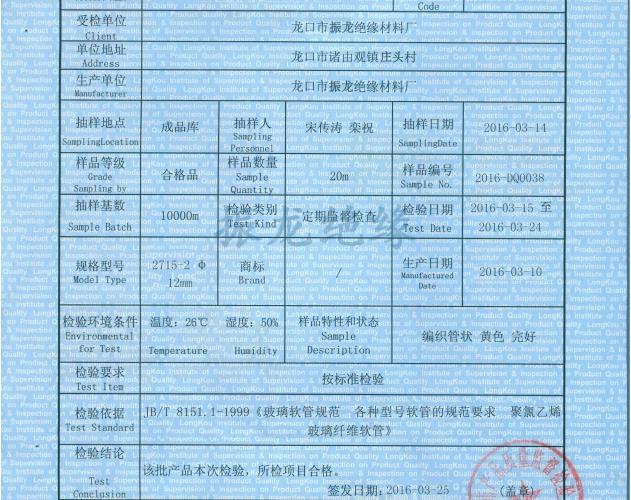 Code
受检单位 龙口市振龙绝缘材料厂
Client
单位地址 龙口市诸由观镇庄头村
Address
生产单位 龙口市振龙绝缘材料厂
Manufacturer
抽样地点 成品库 抽样人 宋传涛 栾祝 抽样日期 2016-03-14
SamplingLocation Sampling Personnel SamplingDate
样品等级 合格品 样品数量 20m 样品编号 2016-DQ0038
Grade Sampling by Sample Quantity Sample No.
抽样基数 10000m 检验类别 定期监督检查 检验日期 2016-03-15 至
Sample Batch Test Kind Test Date 2016-03-24
振龙绝缘
规格型号 2715-2 Φ 商标 / 生产日期 2016-03-10
Model Type 12mm Brand Manufactured Date
检验环境条件 温度：26℃ 湿度：50% 样品特性和状态 编织管状 黄色 完好
Environmental for Test Temperature Humidity Sample Description
检验要求 按标准检验
Test Item
检验依据 JB/T 8151.1-1999《玻璃软管规范 各种型号软管的规范要求 聚氯乙烯
Test Standard 玻璃纤维软管》
检验结论 该批产品本次检验，所检项目合格。
Test Conclusion 签发日期：2016-03-25 （盖章）